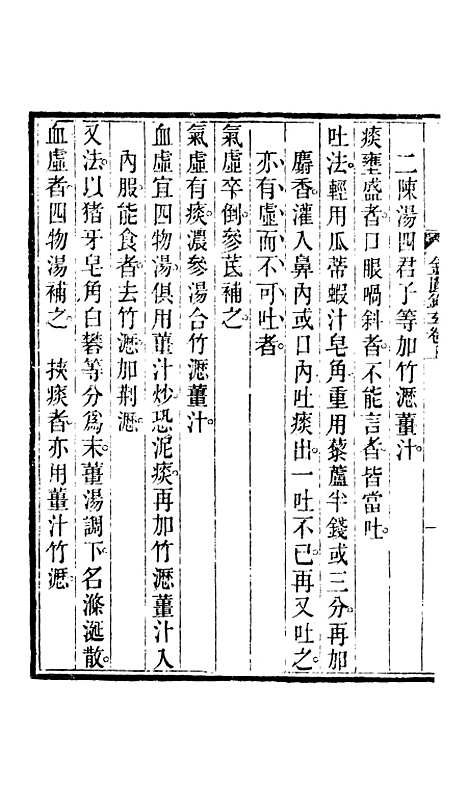 二陳湯四君子等加竹瀝薑汁
痰壅盛者口眼喎斜者不能言者皆當吐
吐法輕用瓜蒂蝦汁皂角重用藜蘆半錢或三分再加
麝香灌入鼻內或口內吐痰出一吐不已再又吐之
亦有虛而不可吐者
氣虛卒倒參芪補之
氣虛有痰濃參湯合竹瀝薑汁
血虛宜四物湯俱用薑汁炒恐泥痰再加竹瀝薑汁入
內服能食者去竹瀝加荆瀝
又法以猪牙皂角白礬等分爲末薑湯調下名滌涎散
血虛者四物湯補之 挾痰者亦用薑汁竹瀝